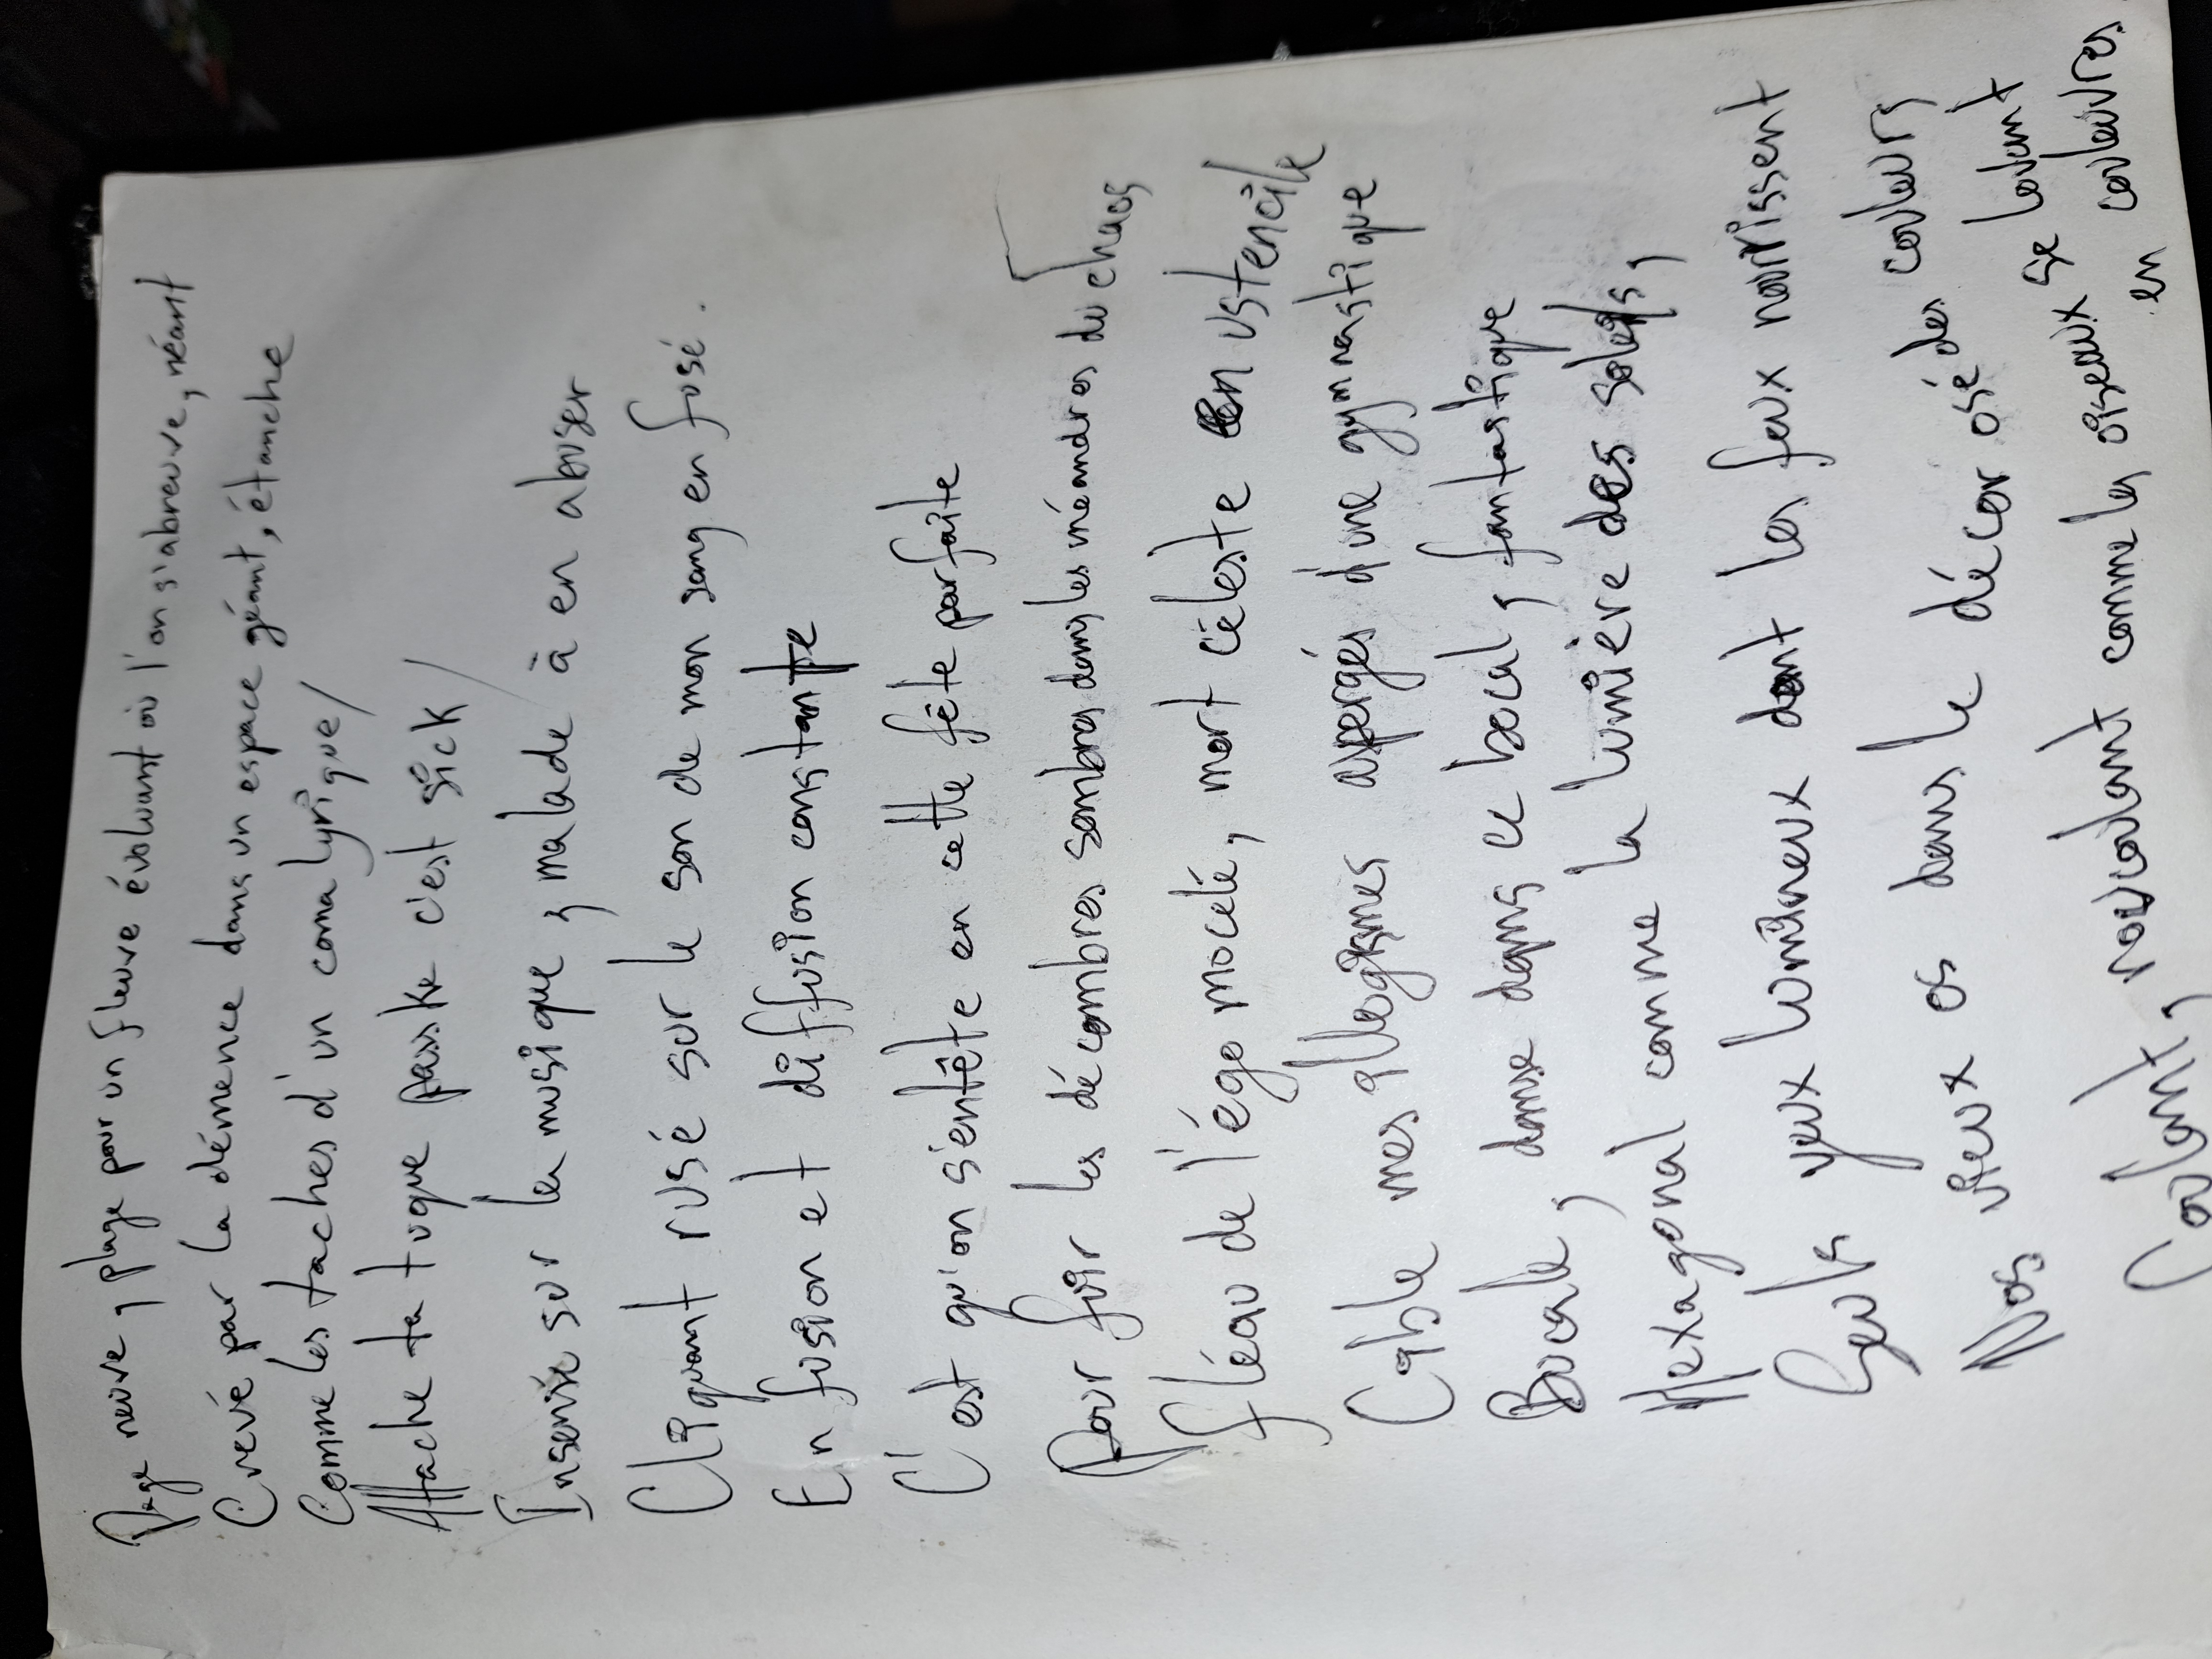 Page neuve, plage pour un fleuve évoluant où l'on s'abreuve, néant
Crevé par la démence dans un espace géant, étanche
Comme les taches d'un coma lyrique/
Attache ta tuque passke c'est sick/
Insenvie sur la musique, malade à en abuser
Cliquant rusé sur le son de mon sang en fusé.
En fusion et diffusion constante
C'est qu'on s'entête en cette fête parfaite
Pour fuir les décombres sombres dans les méandres du chaos
fléau de l'égo mocelé, mort céleste en ustencile
Cable mes allogismes aspergés d'une gymnastique
Bucale, danse dans ce bocal, fantastique
Hexagonal comme la lumière des soleils,
Seuls yeux lumineux dont les feux nourrissent
Nos vieux os dans le décor osé des couleurs
Coulant, roucoulant comme les oiseaux se lovant
en couleuvres.